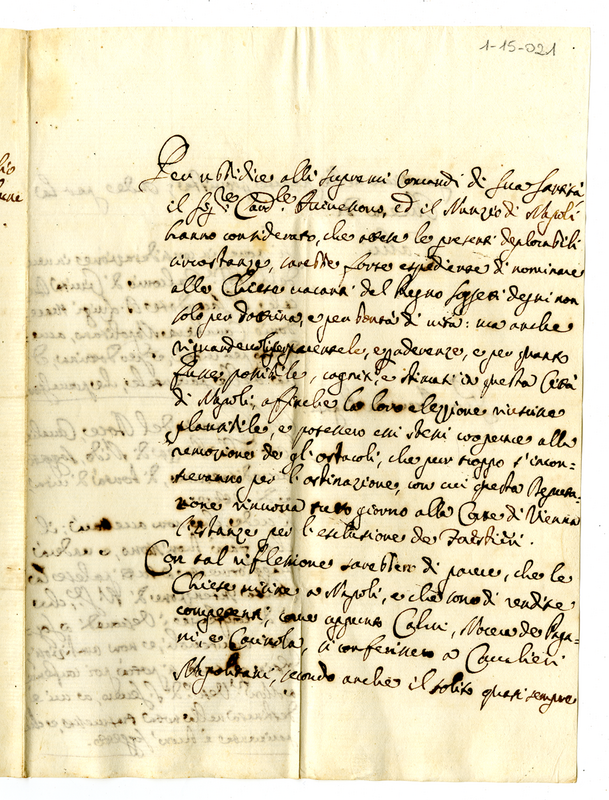 1-15-021
Per ubbidire alli supremi Comandi di Sua Santità
il Sig.re Card.le ed il Nunzio di Napoli
hanno considerato, che attese le presenti deplorabili
circostanze, sarebbe forse espediente di nominare
alle Chiese vacanti del Regno soggetti degni non
solo per dottrina, e per bontà di vita: ma anche
riguardevoli per parentele, e aderenze, e per quanto
fusse possibile, cogniti, e stimati in questa Città
di Napoli, affinche la loro elezzione riuscisse
plausibile, e potessero essi stessi cooperare alla
remozione de gl'ostacoli, che pur troppo s'incon-
treranno per l'ostinazione, con cui questa Deputa-
zione rinuova tutto giorno alla Corte di Vienna
l'istanze per l'esclusione de Forestieri.
Con tal riflessione sarebbero di parere, che le
Chiese vicine a Napoli, e che sono di rendite
competenti, come appunto Calvi, Nocera de Paga-
ni, e si conferissero a Cavalieri
Napolitani, secondo anche il solito quasi sempre